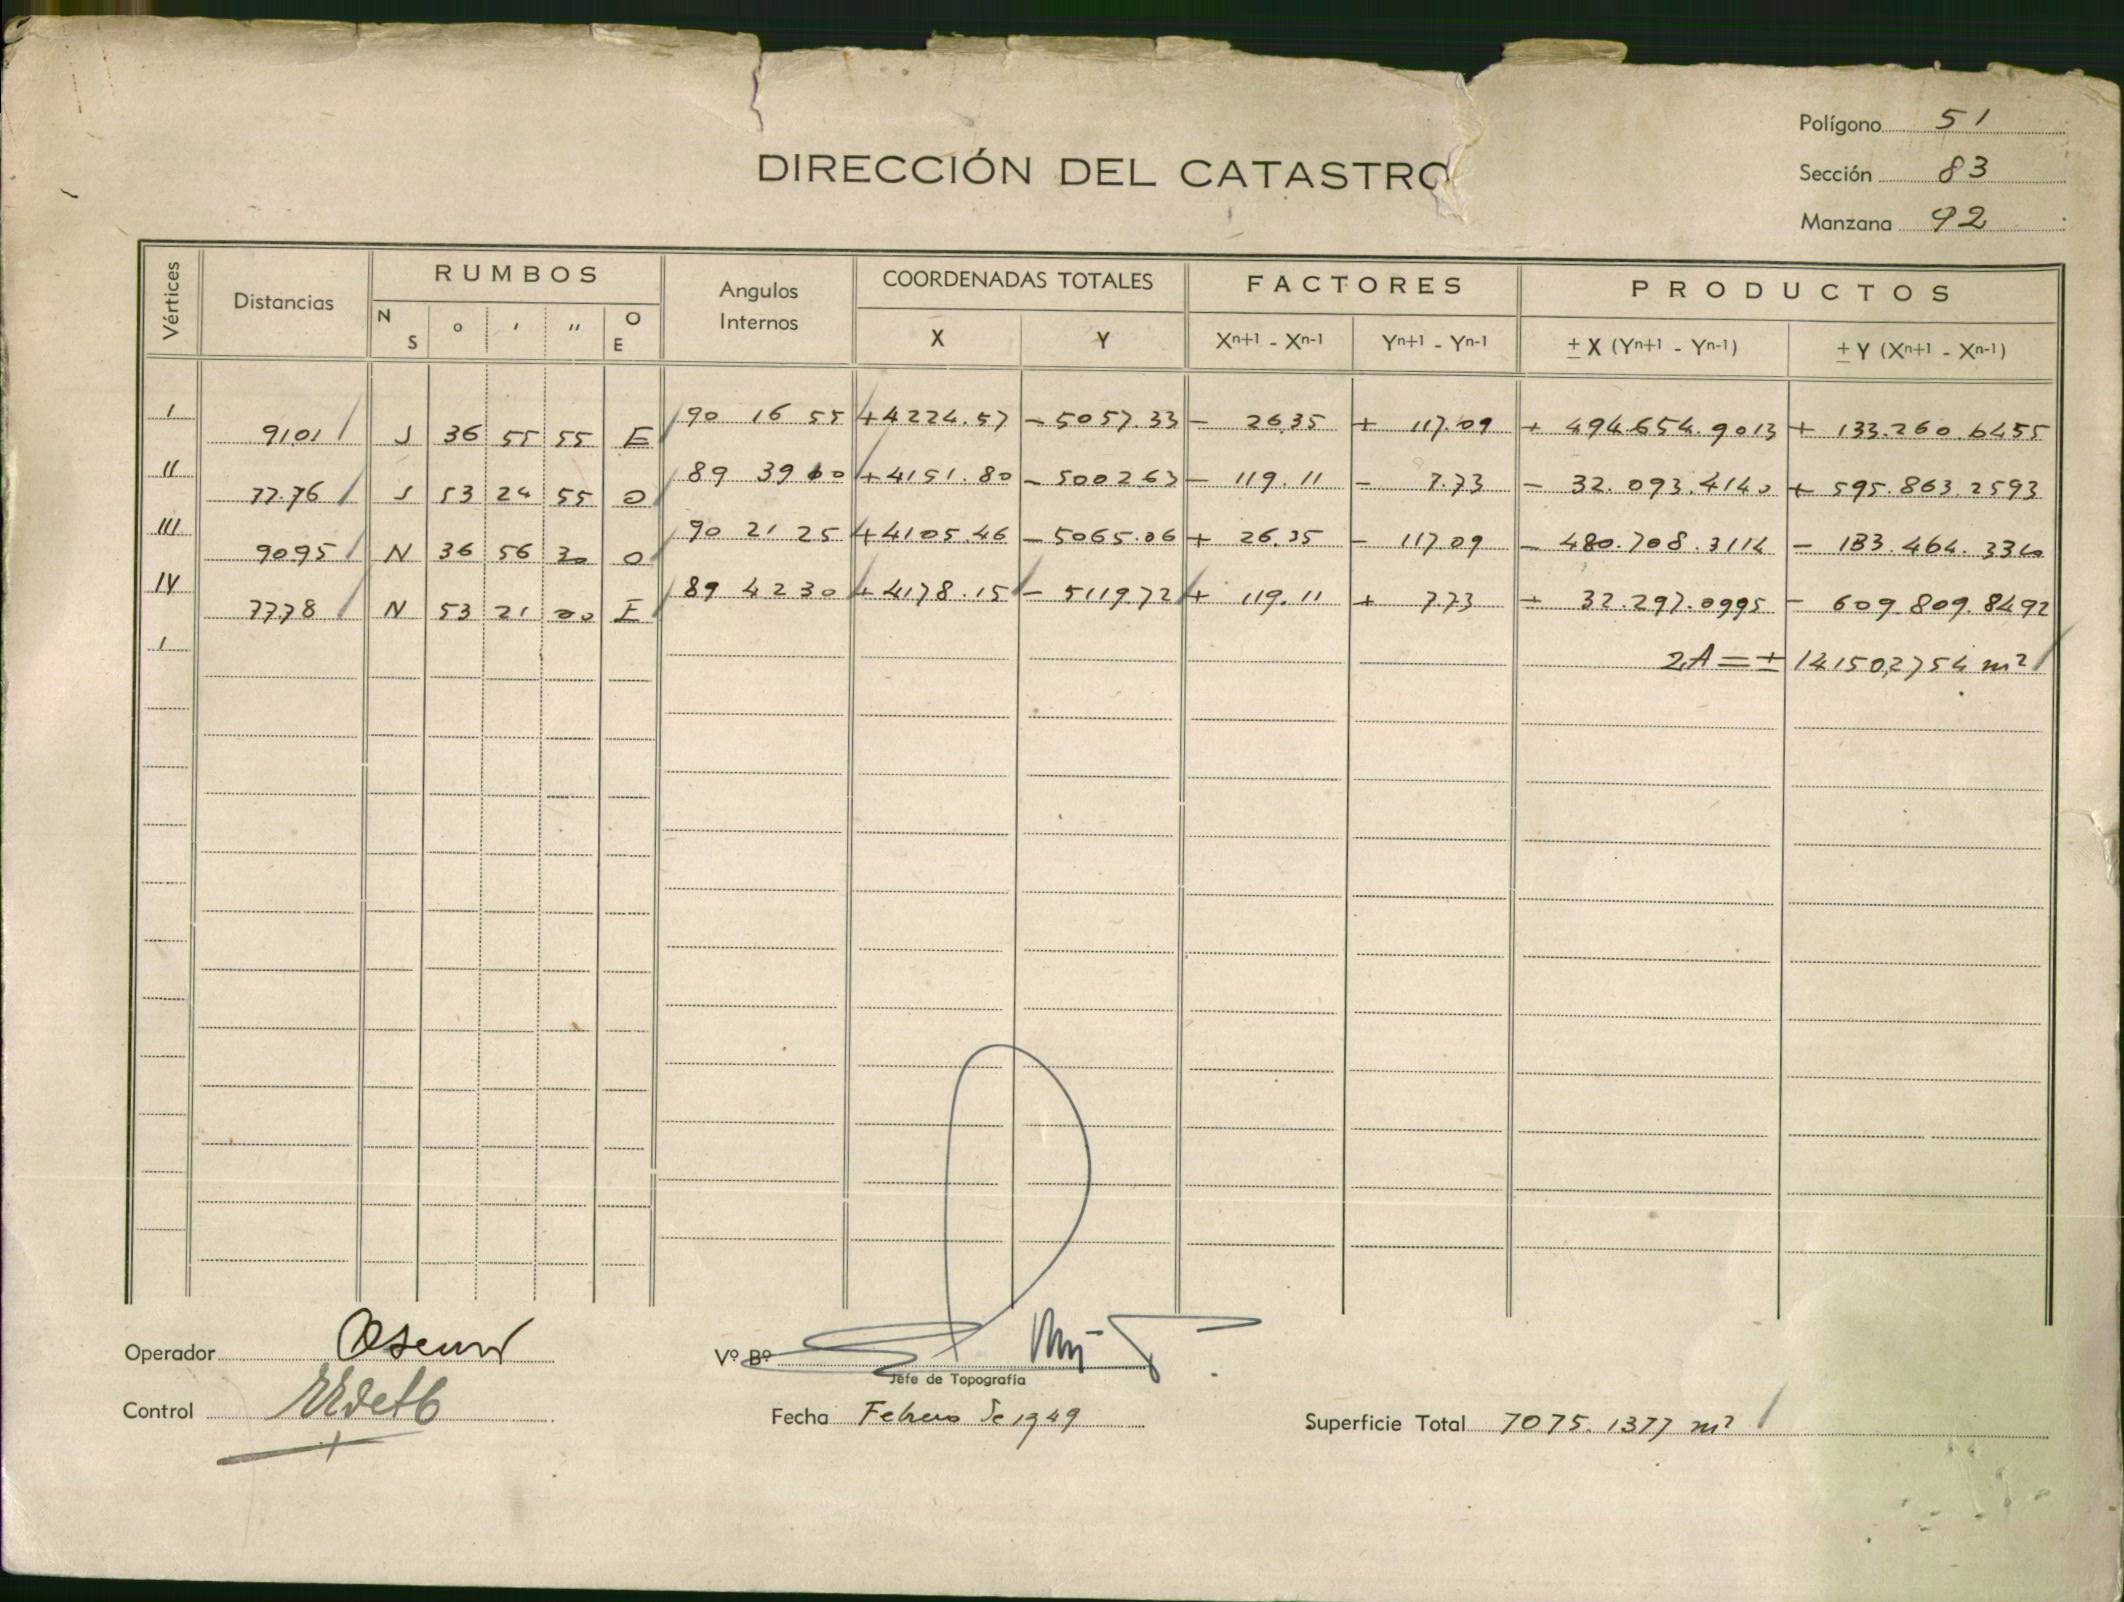 Polígono 51
DIRECCIÓN DEL CATASTRO
Sección 83
Manzana 92
Vértices Distancias RUMBOS Angulos Internos COORDENADAS TOTALES FACTORES PRODUCTOS
N S ° ' " O E X Y Xn+1 - Xn-1 Yn+1 - Yn-1 ± X (Yn+1 - Yn-1) ± Y (Xn+1 - Xn-1)
I 90 16 55 +4224.57 - 5057.33 - 26.35 + 117.09 + 494.654.9013 + 133.260.6455
91.01 S 36 55 55 E
II 89 39 00 +4151.80 - 5002.63 - 119.11 - 7.73 - 32.093.4140 + 595.863.2593
77.76 S 53 24 55 O
III 90 21 25 +4105.46 - 5065.06 + 26.35 - 117.09 - 480.708.3114 - 133.464.3310
90.95 N 36 56 30 O
IV 89 42 30 +4178.15 - 5119.72 + 119.11 + 7.73 + 32.297.0995 - 609.809.8492
77.78 N 53 21 00 E
I 2A = ± 14150,2754 m²
Operador
Vº Bº
Jefe de Topografía
Control
Fecha Febrero de 1949
Superficie Total 7075.1377 m²